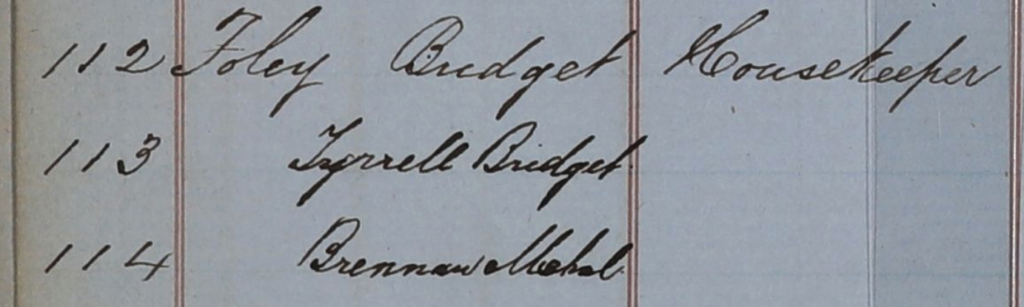 112 Foley Bridget Housekeeper
113 Tyrrell Bridget
114 Brennan Michal